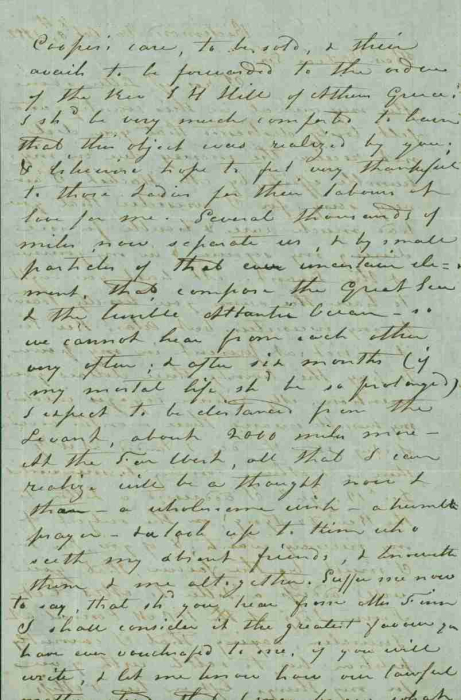 Cooper's care, to be sold, & their
avails to be forwarded to the order
of the Rev J H Hill of Athens Greece;
I sh'd be very much comforted to learn
that this object was realized by you,
& likewise hope to feel very thankful
to those Ladies for their labours of
love for me. Several thousands of
miles now separate us, & by small
particles of that uncertain ele=
ment, that compose the Great Sea
& the Atlantic Ocean - so
we cannot hear from each other
very often; & after six months (if
my mortal life sh'd be so prolonged)
I expect to be distanced from the
Levant, about 2000 miles more -
At the Far West, all that I can
realize will be a thought now &
than - a wholesome wish - a humble
prayer - & a look up to Him who
seeth my absent friends, & knoweth
them & me altogether. Suffer me now
to say, that sh'd you hear from
I shall consider it the greatest favour you
have ever vouchsafed to me, if you will
write, & let me know how our lawful